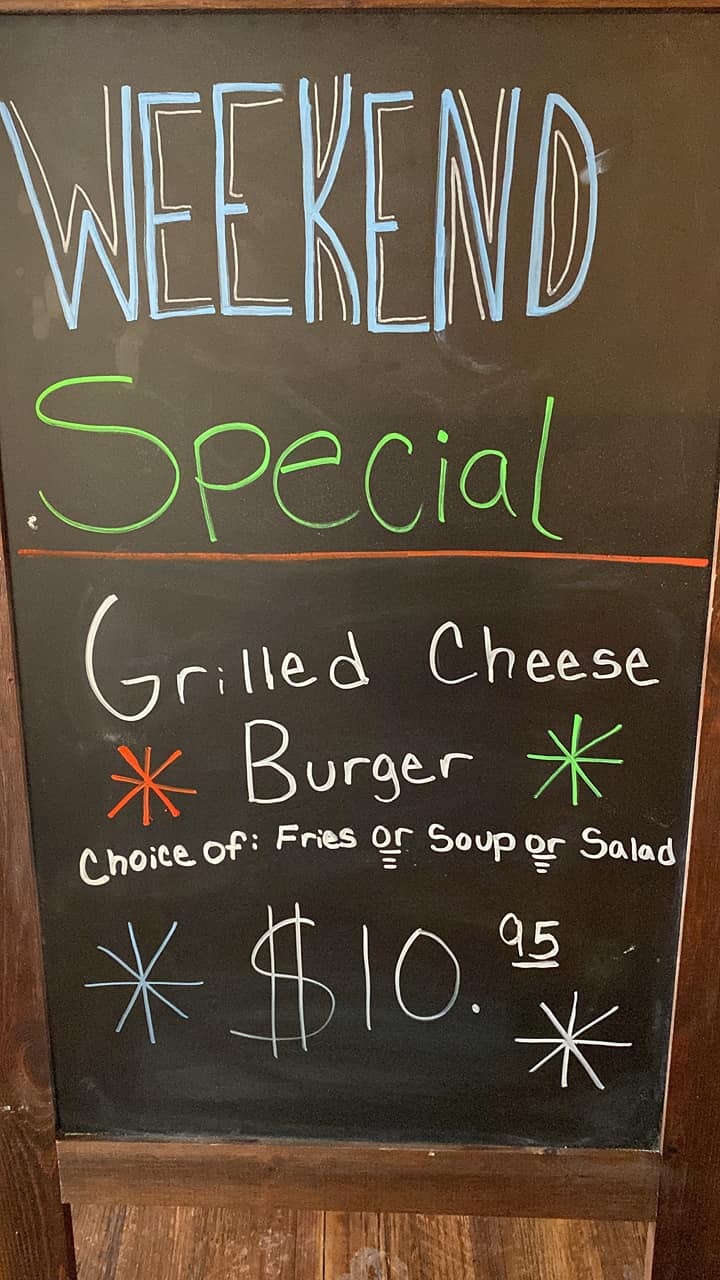 WEEKEND
Special
Grilled Cheese
Burger
Choice of: Fries or Soup or Salad
$10.95